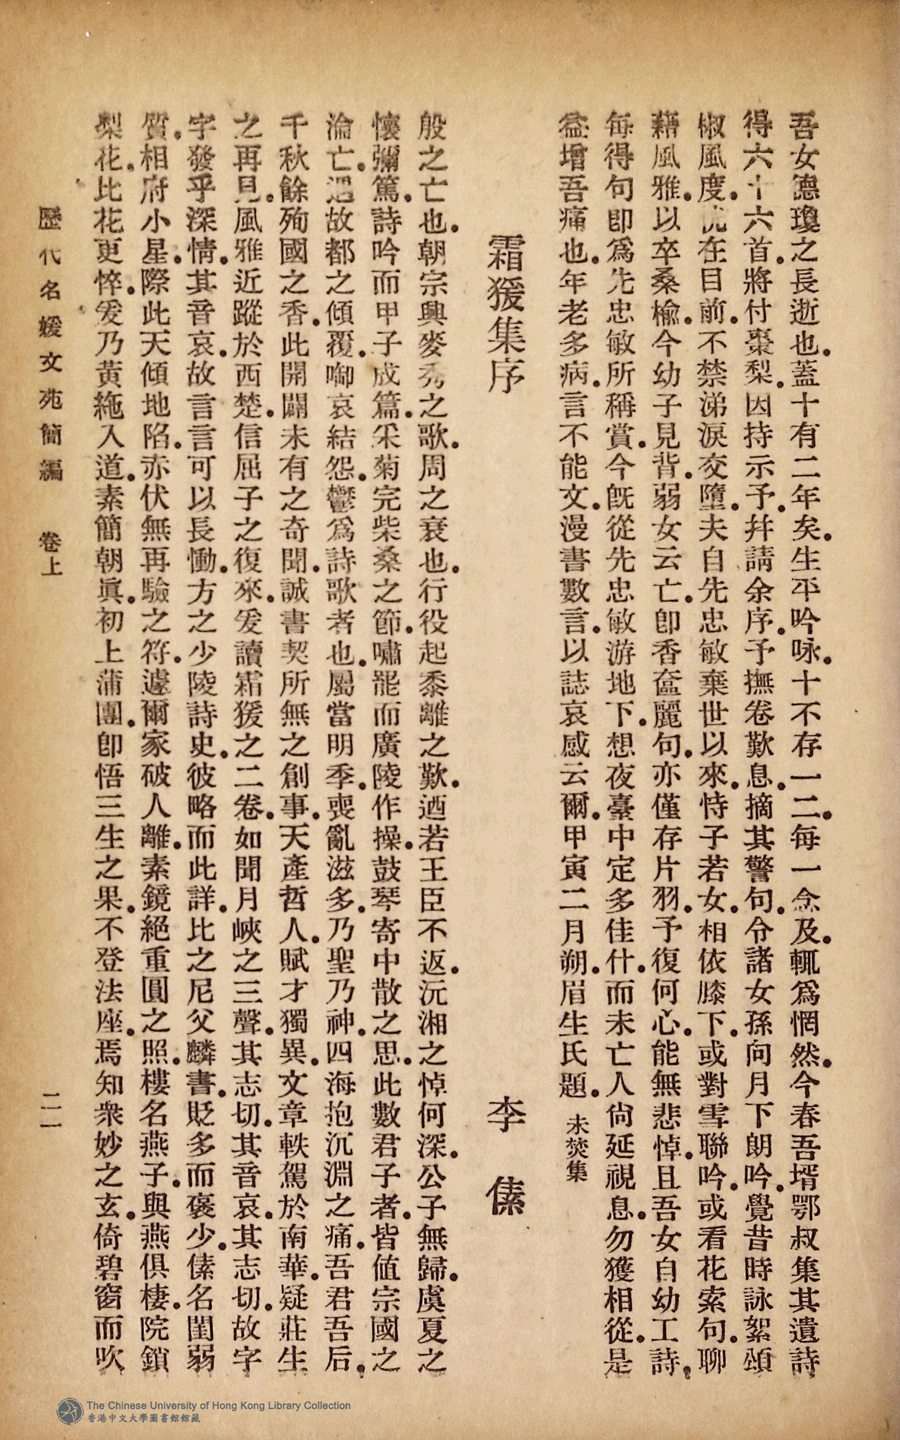 吾女德瓊之長逝也。蓋十有二年矣。生平吟咏。十不存一二。每一念及。輒爲惘然。今春吾壻鄂叔集其遺詩
得六十六首。將付棗梨。因持示予。幷請余序。予撫卷歎息。摘其警句。令諸女孫向月下朗吟。覺昔時詠絮頌
椒風度。恍在目前。不禁涕淚交墮。夫自先忠敏棄世以來。恃子若女。相依膝下。或對雪聯吟。或看花索句。聊
藉風雅。以卒桑楡。今幼子見背。弱女云亡。卽香奩麗句。亦僅存片羽。予復何心。能無悲悼。且吾女自幼工詩。
每得句卽爲先忠敏所稱賞。今旣從先忠敏游地下。想夜臺中定多佳什。而未亡人尙延視息。勿獲相從。是
益增吾痛也。年老多病。言不能文。漫書數言。以誌哀感云爾。甲寅二月朔。眉生氏題。未焚集
霜猨集序 李𠎝
般之亡也。朝宗興麥秀之歌。周之衰也。行役起黍離之歎。迺若王臣不返。沅湘之悼何深。公子無歸。虞夏之
懷彌篤。詩吟而甲子成篇。采菊完柴桑之節。嘯罷而廣陵作操。鼓琴寄中散之思。此數君子者。皆値宗國之
淪亡。過故都之傾覆。啣哀結怨。鬱爲詩歌者也。屬當明季。喪亂滋多。乃聖乃神。四海抱沉淵之痛。吾君吾后。
千秋餘殉國之香。此開闢未有之奇聞。誠書契所無之創事。天產哲人。賦才獨異。文章軼駕於南華。疑莊生
之再見。風雅近蹤於西楚。信屈子之復來。爰讀霜猨之二卷。如聞月峽之三聲。其志切。其音哀。其志切。故字
字發乎深情。其音哀。故言言可以長慟。方之少陵詩史。彼略而此詳。比之尼父麟書。貶多而褒少。𠎝名閨弱
質。相府小星。際此天傾地陷。亦伏無再驗之符。遽爾家破人離。素鏡絕重圓之照。樓名燕子。與燕俱棲。院鎖
梨花。比花更悴。爰乃黃絁入道。素簡朝眞。初上蒲團。卽悟三生之果。不登法座。焉知衆妙之玄。倚碧窗而吹
歷代名媛文苑簡編 卷上 二一
The Chinese University of Hong Kong Library Collection
香港中文大學圖書館館藏